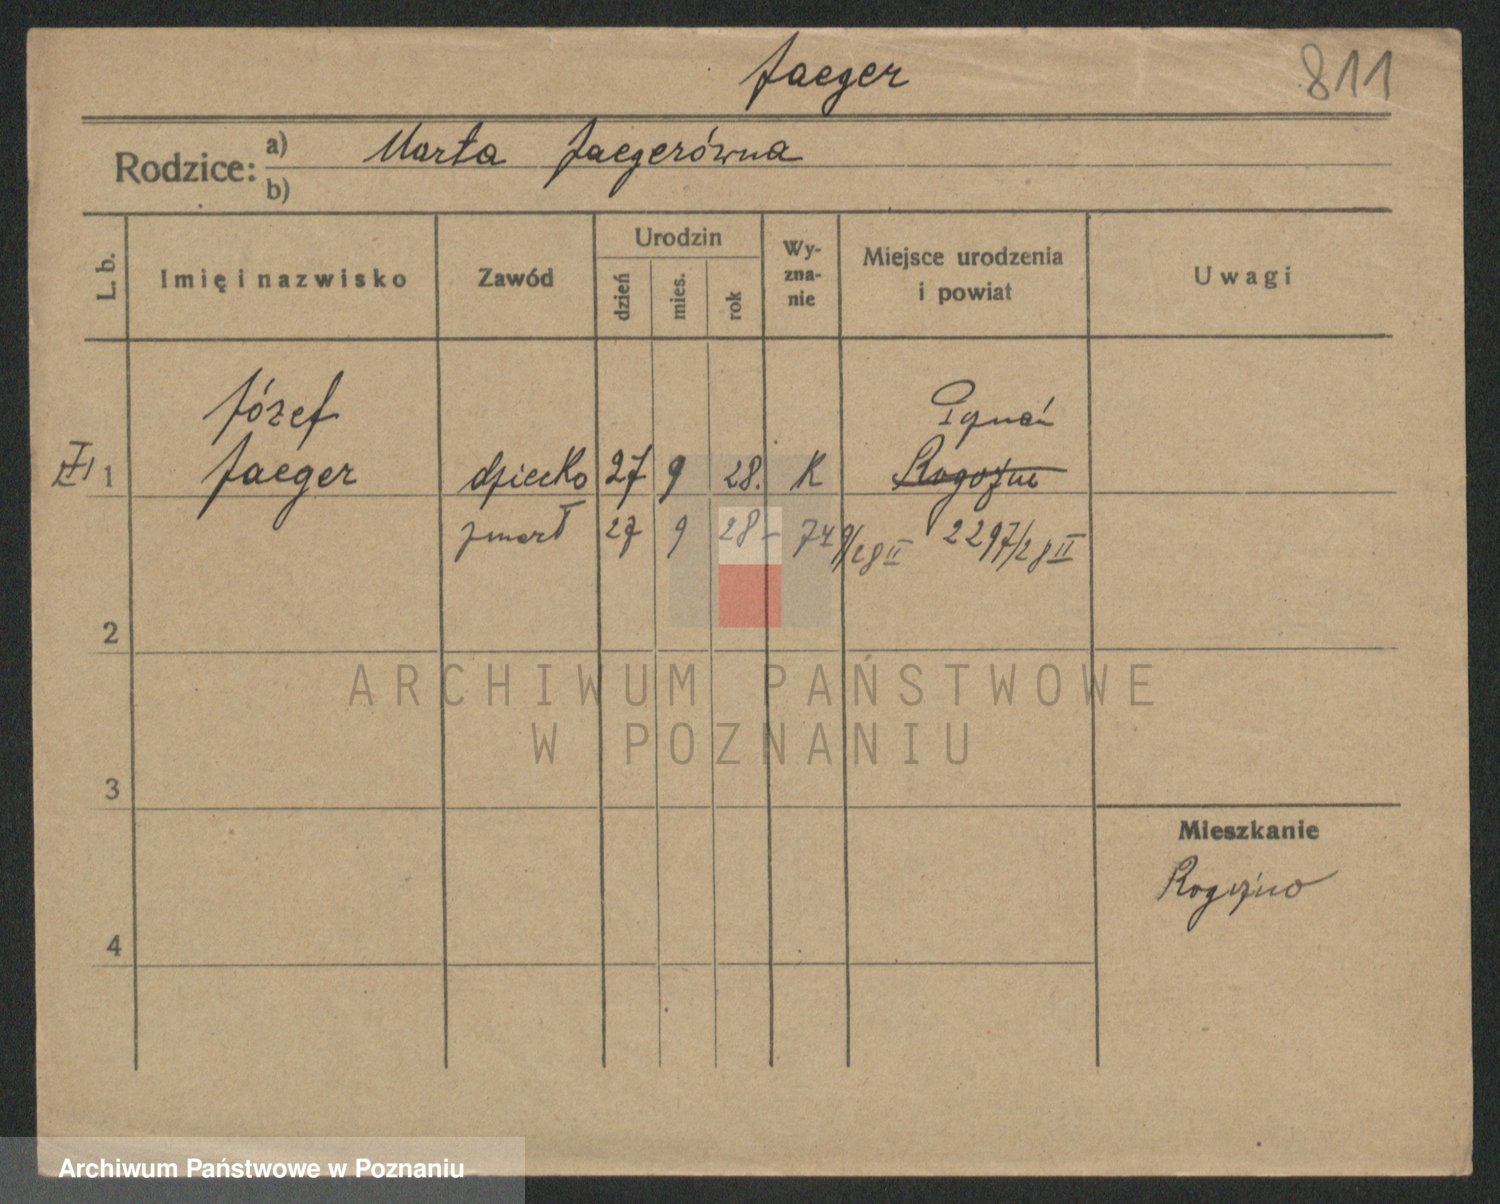 Jaeger
811
Rodzice:
a) Marta Jaegerówna
b)
L. b.
Imię i nazwisko
Zawód
Urodzin
dzień
mies.
rok
Wy-
zna-
nie
Miejsce urodzenia
i powiat
Uwagi
Józef
Jaeger
1
dziecko 27 9 28. K
Rogoźno
zmarł 27 9 28 - 749/28 II 2297/28 II
2
3
4
Mieszkanie
Rogoźno
ARCHIWUM PAŃSTWOWE
W POZNANIU
Archiwum Państwowe w Poznaniu